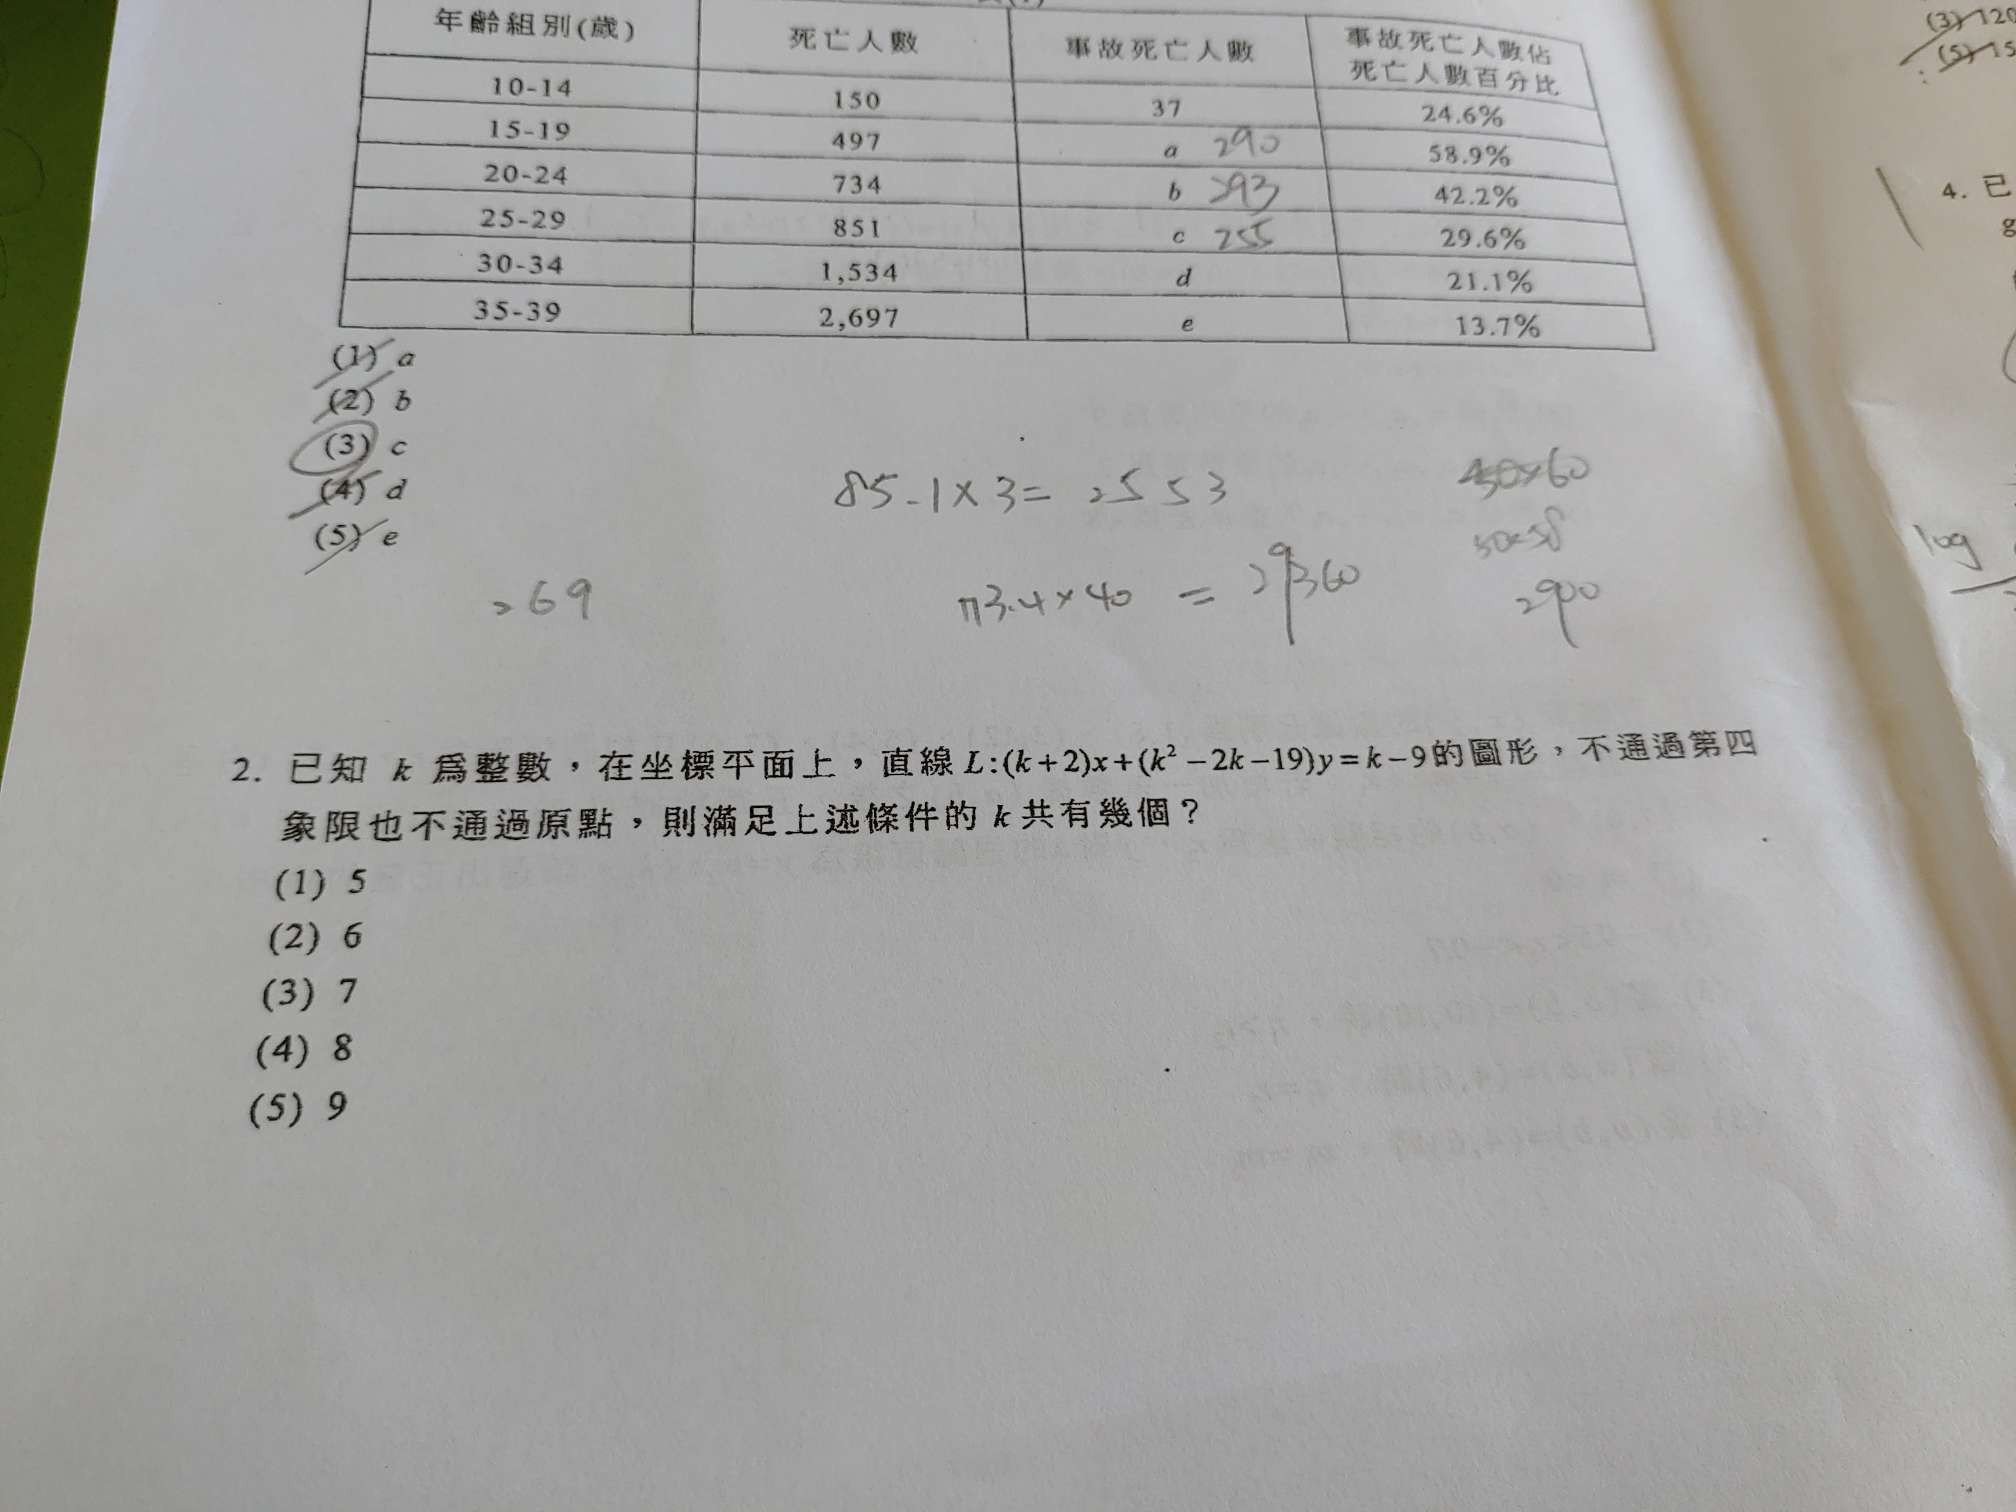 年齡組別(歲) 死亡人數 事故死亡人數 事故死亡人數佔死亡人數百分比
10-14 150 37 24.6%
15-19 497 a 290 58.9%
20-24 734 b 293 42.2%
25-29 851 c 255 29.6%
30-34 1,534 d 21.1%
35-39 2,697 e 13.7%
(1) a
(2) b
(3) c
(4) d
(5) e
85.1×3= 2553
450×60
50×58
2900
269
73.4×40 = 29360
2. 已知 k 為整數，在坐標平面上，直線 L:(k+2)x+(k²-2k-19)y=k-9的圖形，不通過第四
象限也不通過原點，則滿足上述條件的 k 共有幾個？
(1) 5
(2) 6
(3) 7
(4) 8
(5) 9
(3) 120
(5) 15
4. 已
log